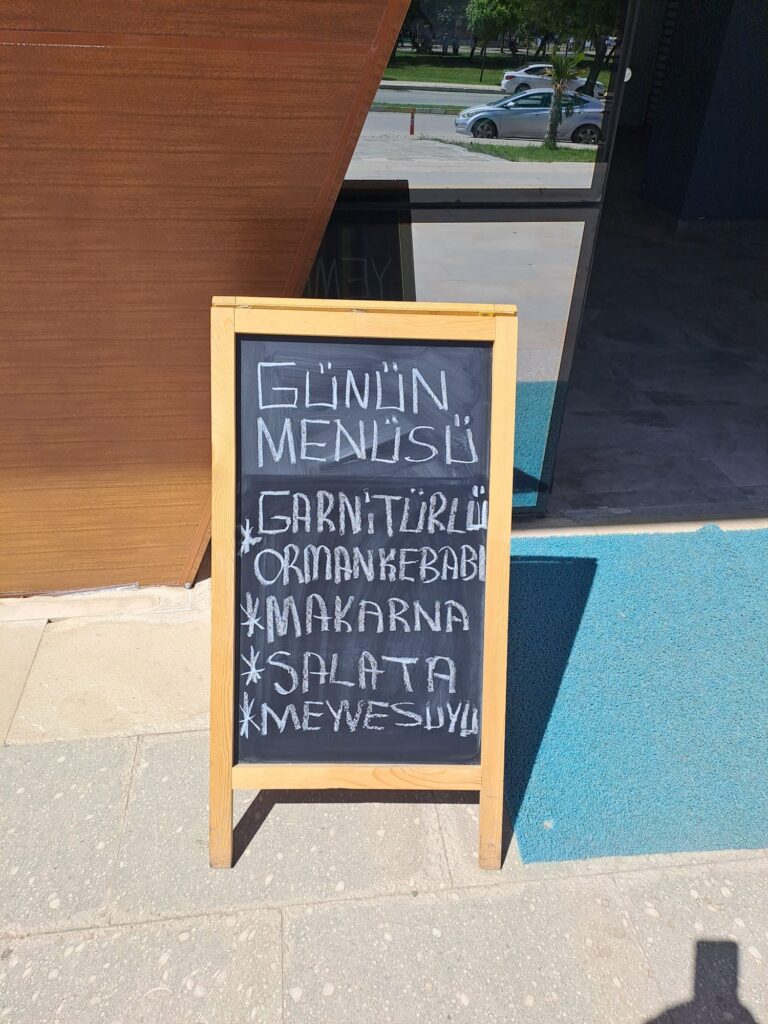 GÜNÜN
MENÜSÜ
GARNİTÜRLÜ
* ORMAN KEBABI
* MAKARNA
* SALATA
* MEYVE SUYU